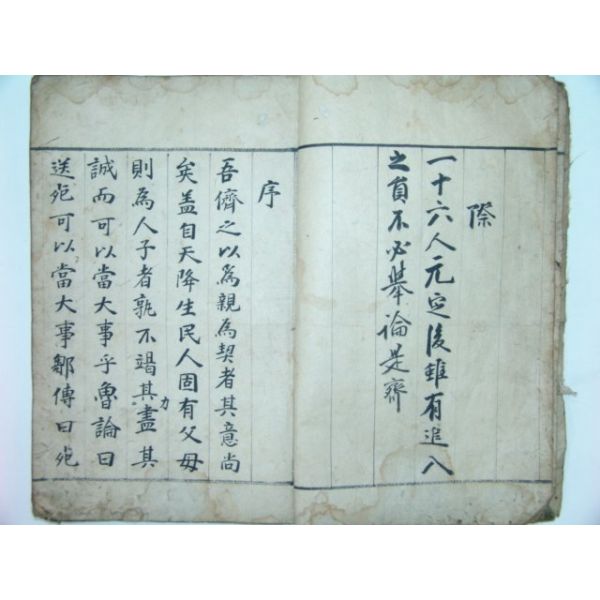 際
一十六人元定後雖有追入
之貟不必擧論是齊
序
吾儕之以為親為契者其意尚
矣盖自天降生民人固有父母
則為人子者孰不竭其力盡其
誠而可以當大事乎魯論曰
送死可以當大事鄒傳曰死